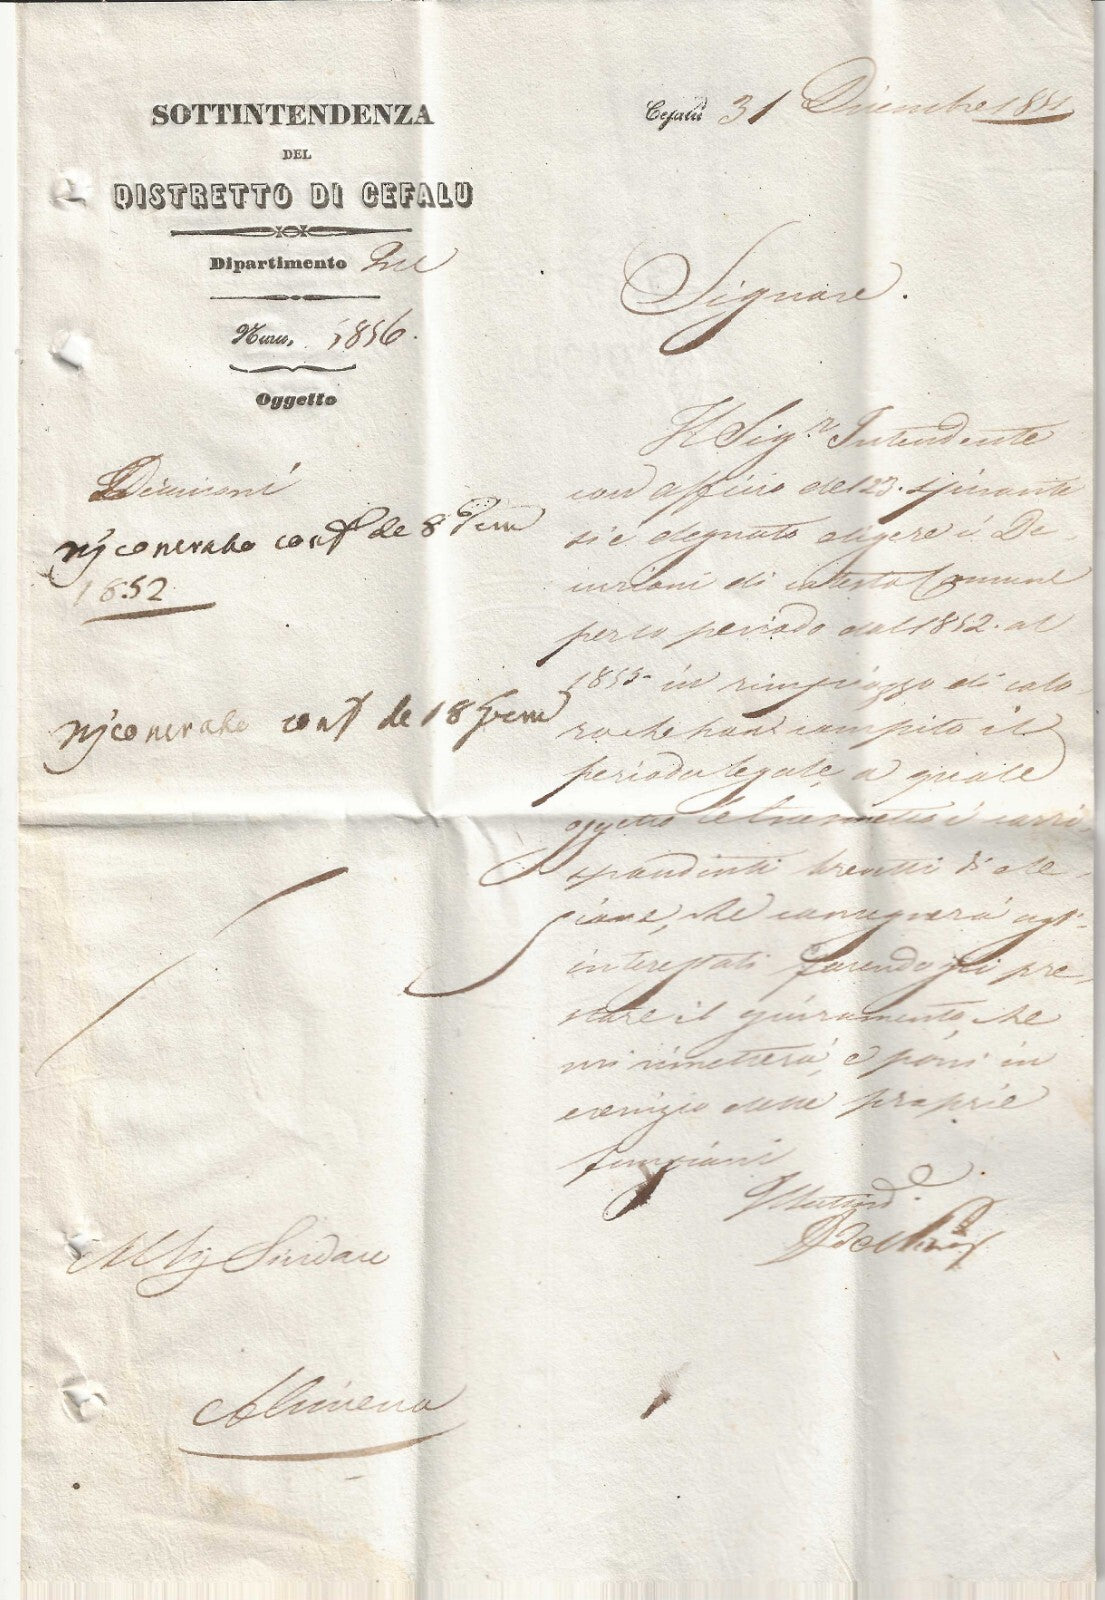 SOTTINTENDENZA
DEL
DISTRETTO DI CEFALU
Dipartimento
Num. 5856.
Oggetto
Decurioni
de 8
1852
de 18
Al Sig Sindaco
Alimena
Cefalù 31 Dicembre 1851
Signore.
Il Sig.r Intendente
con officio del 23. spirante
si è degnato eligere i De-
curioni di cotesto Comune
per lo periodo dal 1852. al
1855. in rimpiazzo di colo-
ro che han compito il
periodo legale, a quale
oggetto le trasmetto i corri-
spondenti brevetti di ele-
zione, che consegnerà agl'
interessati facendogli pre-
stare il giuramento, che
mi rimetterà, e porsi in
esercizio delle proprie
funzioni
Il Sottind.e